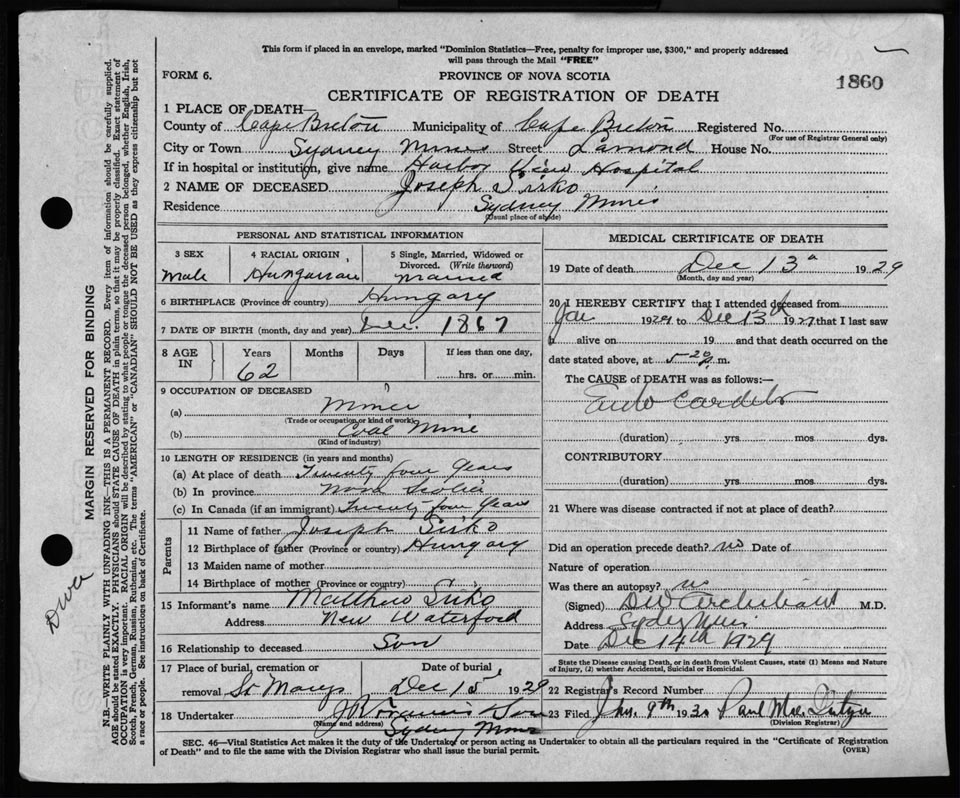 This form if placed in an envelope, marked "Dominion Statistics—Free, penalty for improper use, $300," and properly addressed
will pass through the Mail "FREE"
FORM 6.
PROVINCE OF NOVA SCOTIA
1860
CERTIFICATE OF REGISTRATION OF DEATH
1 PLACE OF DEATH—
County of Cape Breton Municipality of Cape Breton Registered No.
(For use of Registrar General only)
City or Town Sydney Mines Street Lamond House No.
If in hospital or institution, give name Harbor View Hospital
2 NAME OF DECEASED Joseph Sisko
Residence Sydney Mines
(Usual place of abode)
PERSONAL AND STATISTICAL INFORMATION
3 SEX 4 RACIAL ORIGIN 5 Single, Married, Widowed or
Divorced. (Write the word)
Male Hungarian Married
6 BIRTHPLACE (Province or country) Hungary
7 DATE OF BIRTH (month, day and year) Dec. 1867
8 AGE IN Years Months Days If less than one day,
62 hrs. or min.
9 OCCUPATION OF DECEASED
(a) Miner
(Trade or occupation or kind of work)
(b) Coal Mine
(Kind of industry)
10 LENGTH OF RESIDENCE (in years and months)
(a) At place of death Twenty four Years
(b) In province Nova Scotia
(c) In Canada (if an immigrant) Twenty four Years
Parents
11 Name of father Joseph Sisko
12 Birthplace of father (Province or country) Hungary
13 Maiden name of mother
14 Birthplace of mother (Province or country)
15 Informant's name Matthew Sisko
Address New Waterford
16 Relationship to deceased Son
17 Place of burial, cremation or Date of burial
removal St Marys Dec 15 1929
18 Undertaker Son
(Name and address) Sydney Mines
MEDICAL CERTIFICATE OF DEATH
19 Date of death Dec 13 1929
(Month, day and year)
20 I HEREBY CERTIFY that I attended deceased from
Jan 1929 to Dec 13th 1927 that I last saw
h alive on 19 and that death occurred on the
date stated above, at 5-20 p.m.
The CAUSE of DEATH was as follows:—
Endo Carditis
(duration) yrs. mos. dys.
CONTRIBUTORY
(duration) yrs. mos. dys.
21 Where was disease contracted if not at place of death?
Did an operation precede death? no Date of
Nature of operation
Was there an autopsy? no
(Signed) DW Archibald M.D.
Address Sydney Mines
Date Dec 14th 1929
State the Disease causing Death, or in death from Violent Causes, state (1) Means and Nature
of Injury, (2) whether Accidental, Suicidal or Homicidal.
22 Registrar's Record Number
23 Filed Jan. 9th 1930 Paul
(Division Registrar)
SEC. 46—Vital Statistics Act makes it the duty of the Undertaker or person acting as Undertaker to obtain all the particulars required in the "Certificate of Registration
of Death" and to file the same with the Division Registrar who shall issue the burial permit.
(OVER)
MARGIN RESERVED FOR BINDING
N.B.—WRITE PLAINLY WITH UNFADING INK—THIS IS A PERMANENT RECORD. Every item of information should be carefully supplied.
AGE should be stated EXACTLY. PHYSICIANS should STATE CAUSE OF DEATH in plain terms, so that it may be properly classified. Exact statement of
OCCUPATION is very important. RACIAL ORIGIN will be described by stating to what people or tongue the deceased person belonged, whether English, Irish,
Scotch, French, German, Russian, Ruthenian, etc. The terms "AMERICAN" or "CANADIAN" SHOULD NOT BE USED as they express citizenship but not
a race or people. See instructions on back of Certificate.
DWA